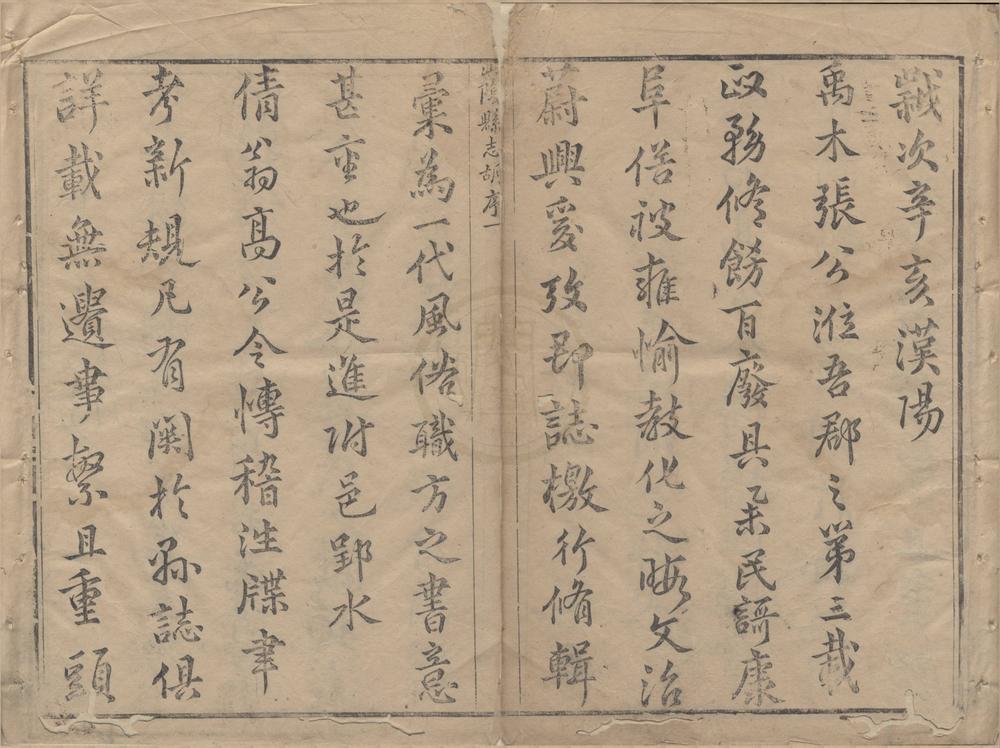 歲次辛亥漢陽
禹木張公涖吾郡之第三載
政務脩餝百廢具舉民謌康
阜俗被雍愉教化之暇文治
蔚興爰攷郡誌檄行脩輯
山陰縣志 序一
彙為一代風俗職方之書意
甚重也於是進附邑郢水
倩翁高公令慱稽往牒聿
考新規凡有闕於縣誌俱
詳載無遺事繁且重顧